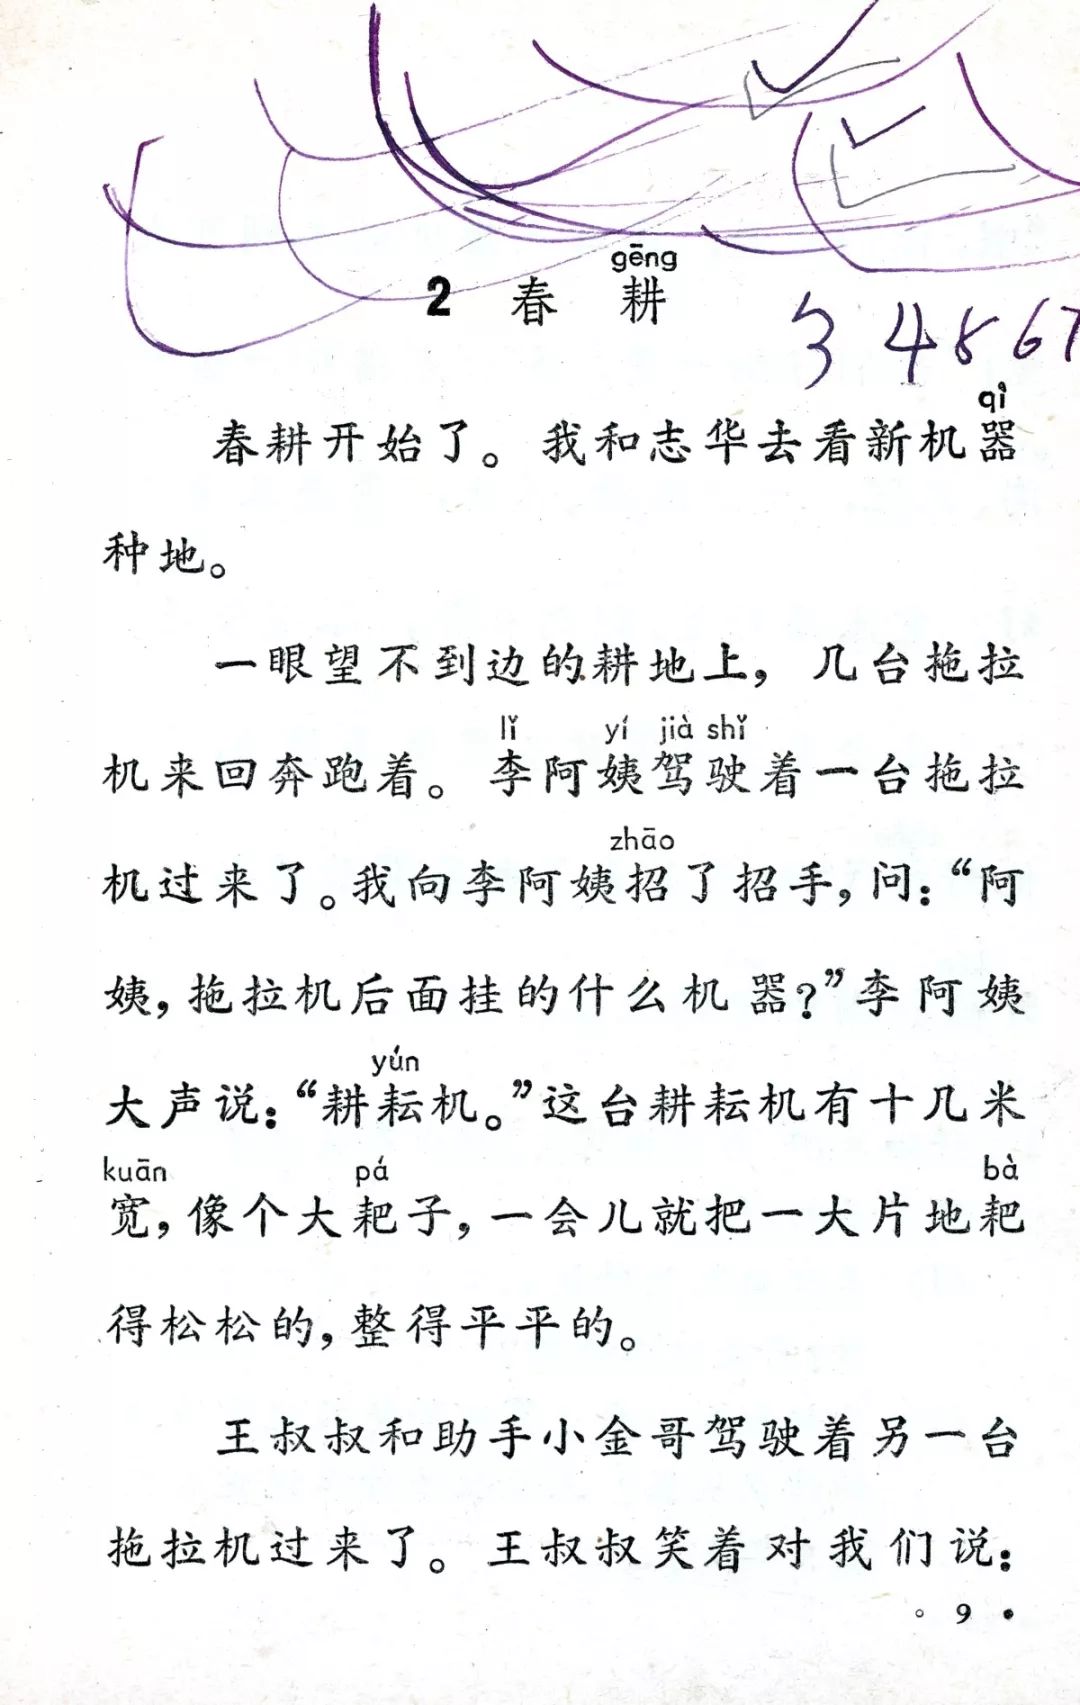 gēng
2 春 耕
3 4 5 6 7
qì
春耕开始了。我和志华去看新机器
种地。
一眼望不到边的耕地上，几台拖拉
lǐ yí jià shǐ
机来回奔跑着。李阿姨驾驶着一台拖拉
zhāo
机过来了。我向李阿姨招了招手，问：“阿
姨，拖拉机后面挂的什么机器？”李阿姨
yún
大声说：“耕耘机。”这台耕耘机有十几米
kuān pá bà
宽，像个大耙子，一会儿就把一大片地耙
得松松的，整得平平的。
王叔叔和助手小金哥驾驶着另一台
拖拉机过来了。王叔叔笑着对我们说：
◦ 9 •